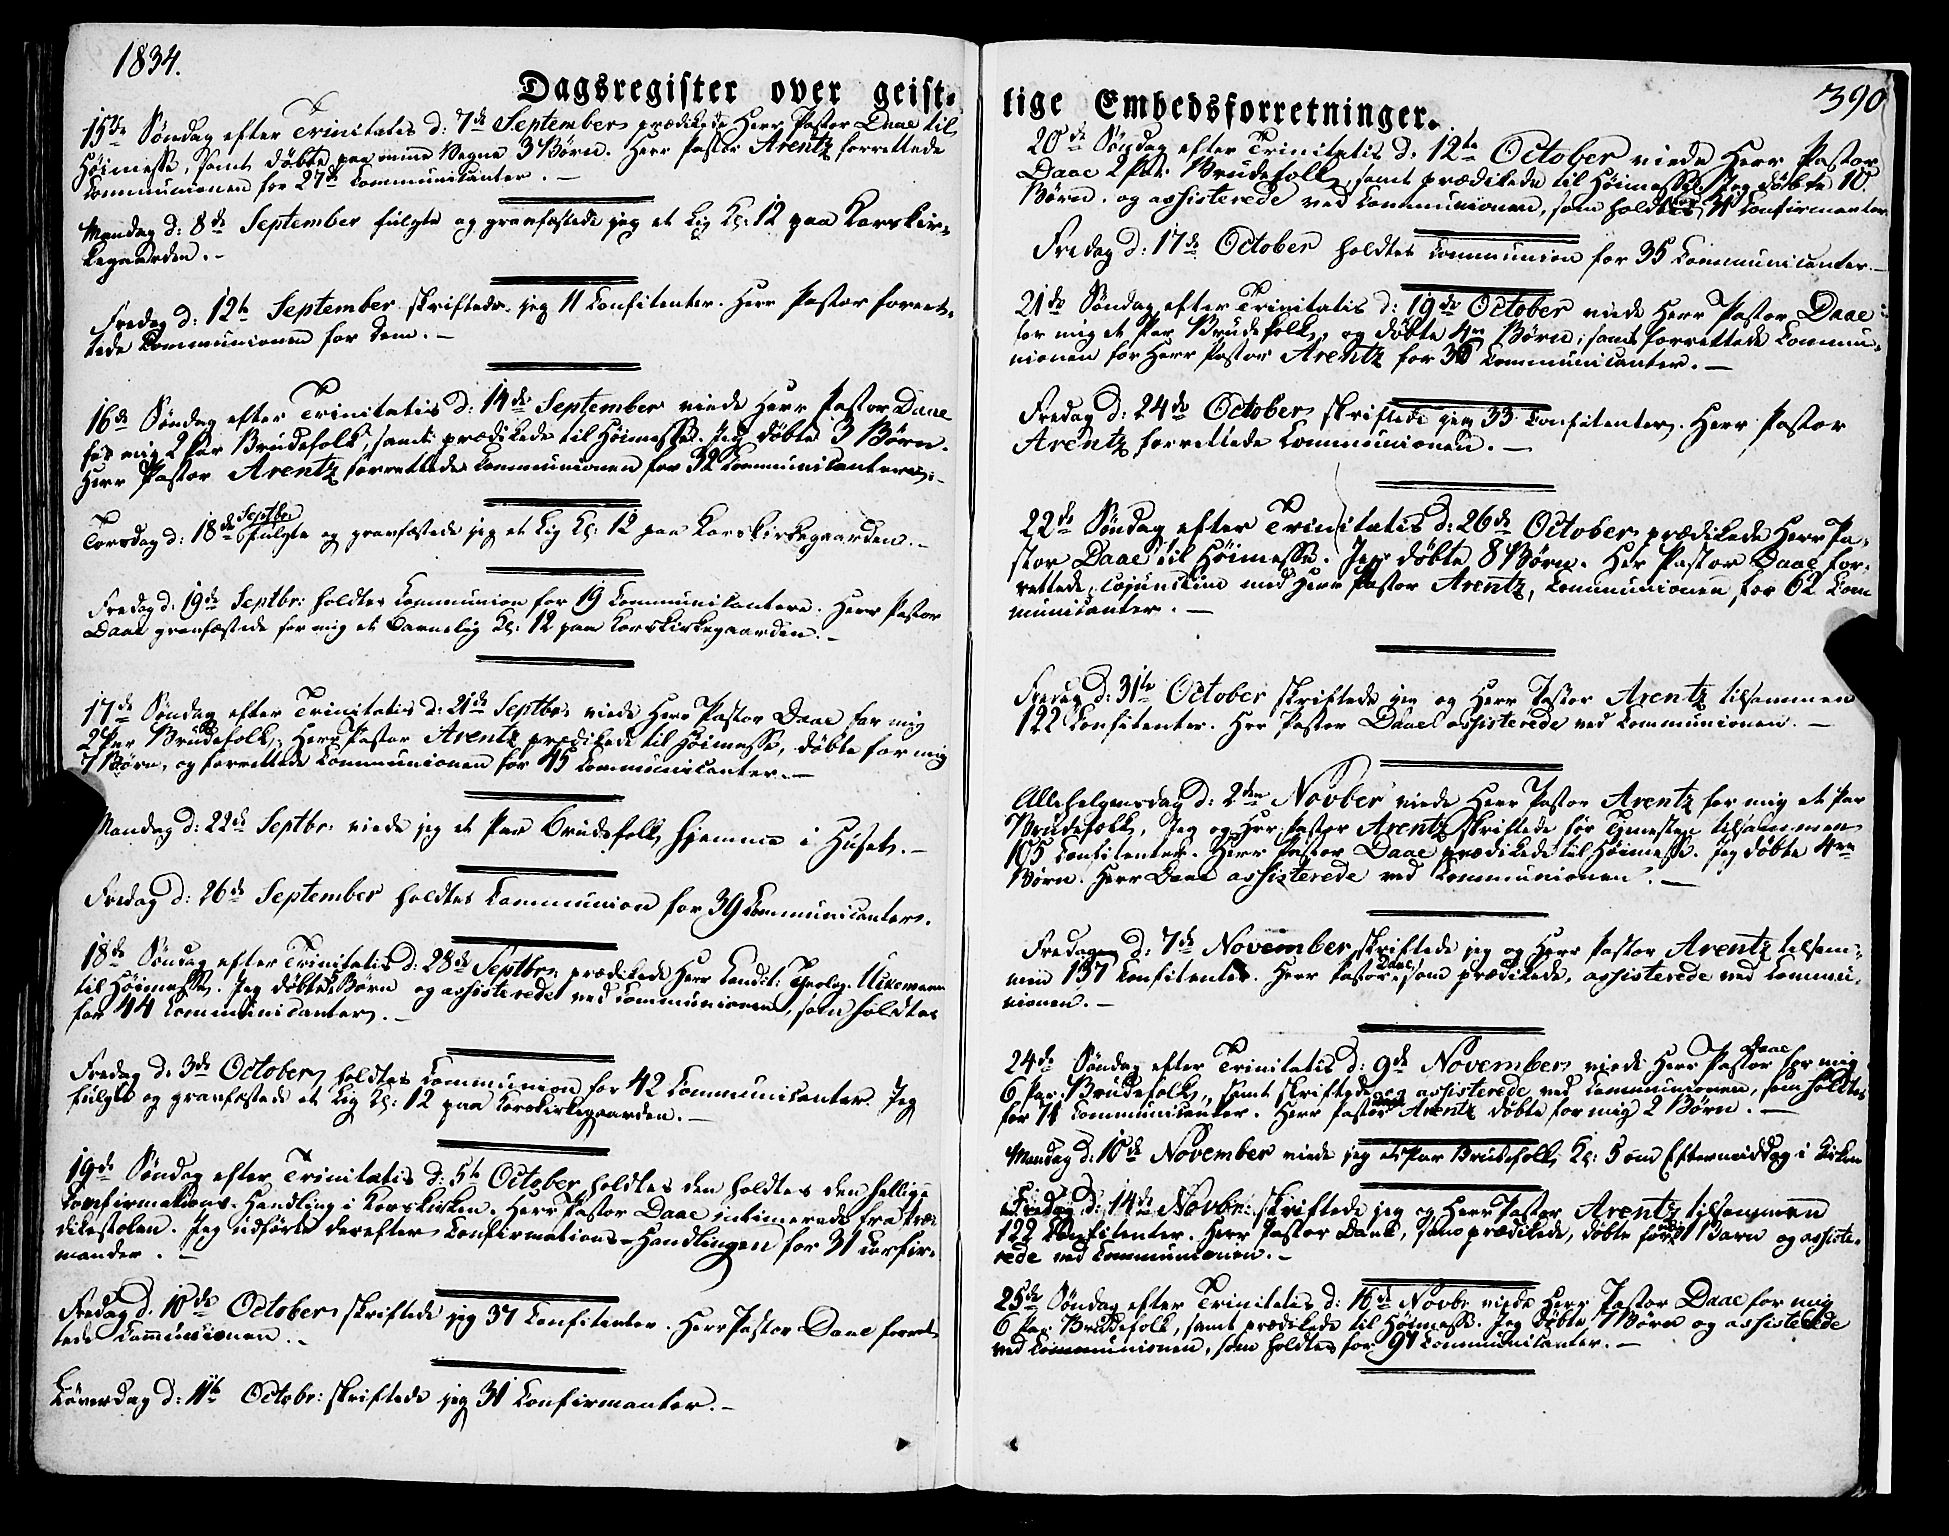 1834.
Dagsregister over geist-
15de Søndag efter Trinitatis d: 7de September prædikede Herr Pastor Daae til
Høimesse, samt døbte paa mine Vegne 3 Børn. Herr Pastor Arentz forrettede
Communionen for 27 Communicanter. —
Mandag d: 8de September fulgte og gravfæstede jeg et Lig Kl: 12 paa Korskir-
kegaarden. —
Fredag d: 12te September skriftede jeg 11 Confitenter. Herr Pastor forret-
tede Communionen for dem. —
16de Søndag efter Trinitatis d: 14de September viede Herr Pastor Daae
for mig 2 Par Brudefolk, samt prædikede til Høimesse. Jeg døbte 3 Børn.
Herr Pastor Arentz forrettede Communionen for 32 Communicantere. —
Torsdag d: 18de Septbr fulgte og gravfæstede jeg et Lig Kl: 12 paa Korskirkegaarden. —
Fredag d: 19de Septbr: holdtes Communion for 19 Communicantere. Herr Pastor
Daae gravfæstede for mig et Barnelig Kl: 12 paa Korskirkegaarden. —
17de Søndag efter Trinitatis d: 21de Septbr: viede Herr Pastor Daae for mig
2 Par Brudefolk; Herr Pastor Arentz prædikede til Høimesse, døbte for mig
7 Børn, og forrettede Communionen for 45 Communicanter. —
Mandag d: 22de Septbr: viede jeg et Par Brudefolk hjemme i Huset. —
Fredag d: 26de September holdtes Communion for 39 Communicanter.
18de Søndag efter Trinitatis d: 28de Septbr: prædikede Herr Candit: Theolog.
til Høimesse. Jeg døbte Børn og assisterede ved Communionen, som holdtes
for 44 Communicanter. —
Fredag d. 3de October holdtes Communion for 42 Communicanter. Jeg
fulgte og gravfæstede et Lig Kl: 12 paa Korskirkegaarden. —
19de Søndag efter Trinitatis d: 5te October holdtes den holdtes den hellige
Confirmations-Handling i Korskirken. Herr Pastor Daae intimerede fra Præ-
dikestolen. Jeg udførte derefter Confirmations-Handlingen for 31 Confir-
mander. —
Fredag d. 10de October skriftede jeg 37 Confitenter. Herr Pastor Daae forret-
tede Communionen. —
Løverdag d: 11te Octobr: skriftede jeg 31 Confirmanter. —
lige Embedsforretninger.
390
20de Søndag efter Trinitatis d: 12te October viede Herr Pastor
Daae 2 Par Brudefolk, samt prædikede til Høimesse. Jeg døbte 10
Børn. og assisterede ved Communionen, som holdtes 31 Confirmanter
Fredag d: 17de October holdtes Communion for 35 Communicanter. —
21de Søndag efter Trinitatis d: 19de October viede Herr Pastor Daae
for mig et Par Brudefolk, og døbte 4re Børn; samt forrettede Commu-
nionen for Herr Pastor Arentz for 36 Communicanter. —
Fredag d: 24de October skriftede jeg 33 Confitenter. Herr Pastor
Arentz forrettede Communionen. —
22de Søndag efter Trinitatis d: 26de October prædikede Herr Pa-
stor Daae til Høimesse. Jeg døbte 8 Børn. Herr Pastor Daae for-
rettede, cojunctim med Herr Pastor Arentz, Communionen for 62 Com
municanter. —
Fredag d: 31te October skriftede jeg og Herr Pastor Arentz tilsammen
122 Confitenter. Herr Pastor Daae assisterede ved Communionen. —
Allehelgensdag d: 2den Novber viede Herr Pastor Arentz for mig et Par
Brudefolk, Jeg og Herr Pastor Arentz skriftede før Tjenesten tilsammen
105 Confitenter. Herr Pastor Daae prædikede til Høimesse. Jeg døbte 4re
Børn. Herr Daae assisterede ved Communionen. —
Fredagen d: 7de November skriftede jeg og Herr Pastor Arentz tilsam-
men 137 Confitenter. Herr Pastor Daae, som prædikede, assisterede ved Commu-
nionen. —
24de Søndag efter Trinitatis d: 9de November viede Herr Pastor Daae for mig
6 Par Brudefolk, samt skriftede og assisterede ved Communionen, som holdtes
for 71 Communicanter. Herr Pastor Arentz døbte for mig 2 Børn. —
Mandag d: 10de November viede jeg et Par Brudefolk Kl: 5 om Eftermiddag i Kirken
Fredag d: 14de Novbr: skriftede jeg og Herr Pastor Arentz tilsammen
122 Confitenter. Herr Pastor Daae, som prædikede, døbte for mig 1 Barn og assiste-
rede ved Communionen. —
25de Søndag efter Trinitatis d: 16de Novbr viede Herr Pastor Daae for mig
6 Par Brudefolk, samt prædikede til Høimesse. Jeg døbte 7 Børn og assisterede
ved Communionen, som holdtes for 97 Communicanter. —